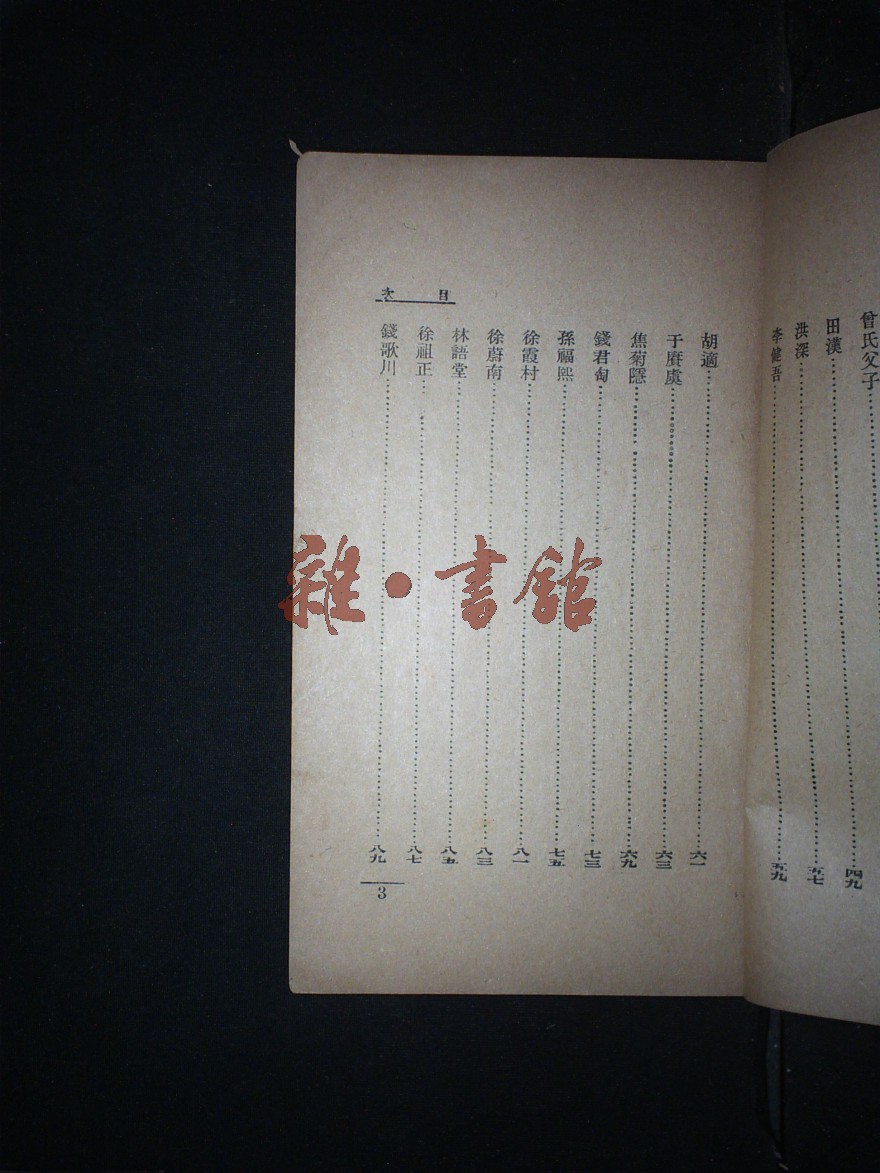 曾氏父子
田漢……四九
洪深……五七
李健吾……五九
目次
胡適……六一
于賡虞……六三
焦菊隱……六九
錢君匋……七三
孫福熙……七五
徐霞村……八一
徐蔚南……八三
林語堂……八五
徐祖正……八七
錢歌川……八九
3
雜·書館